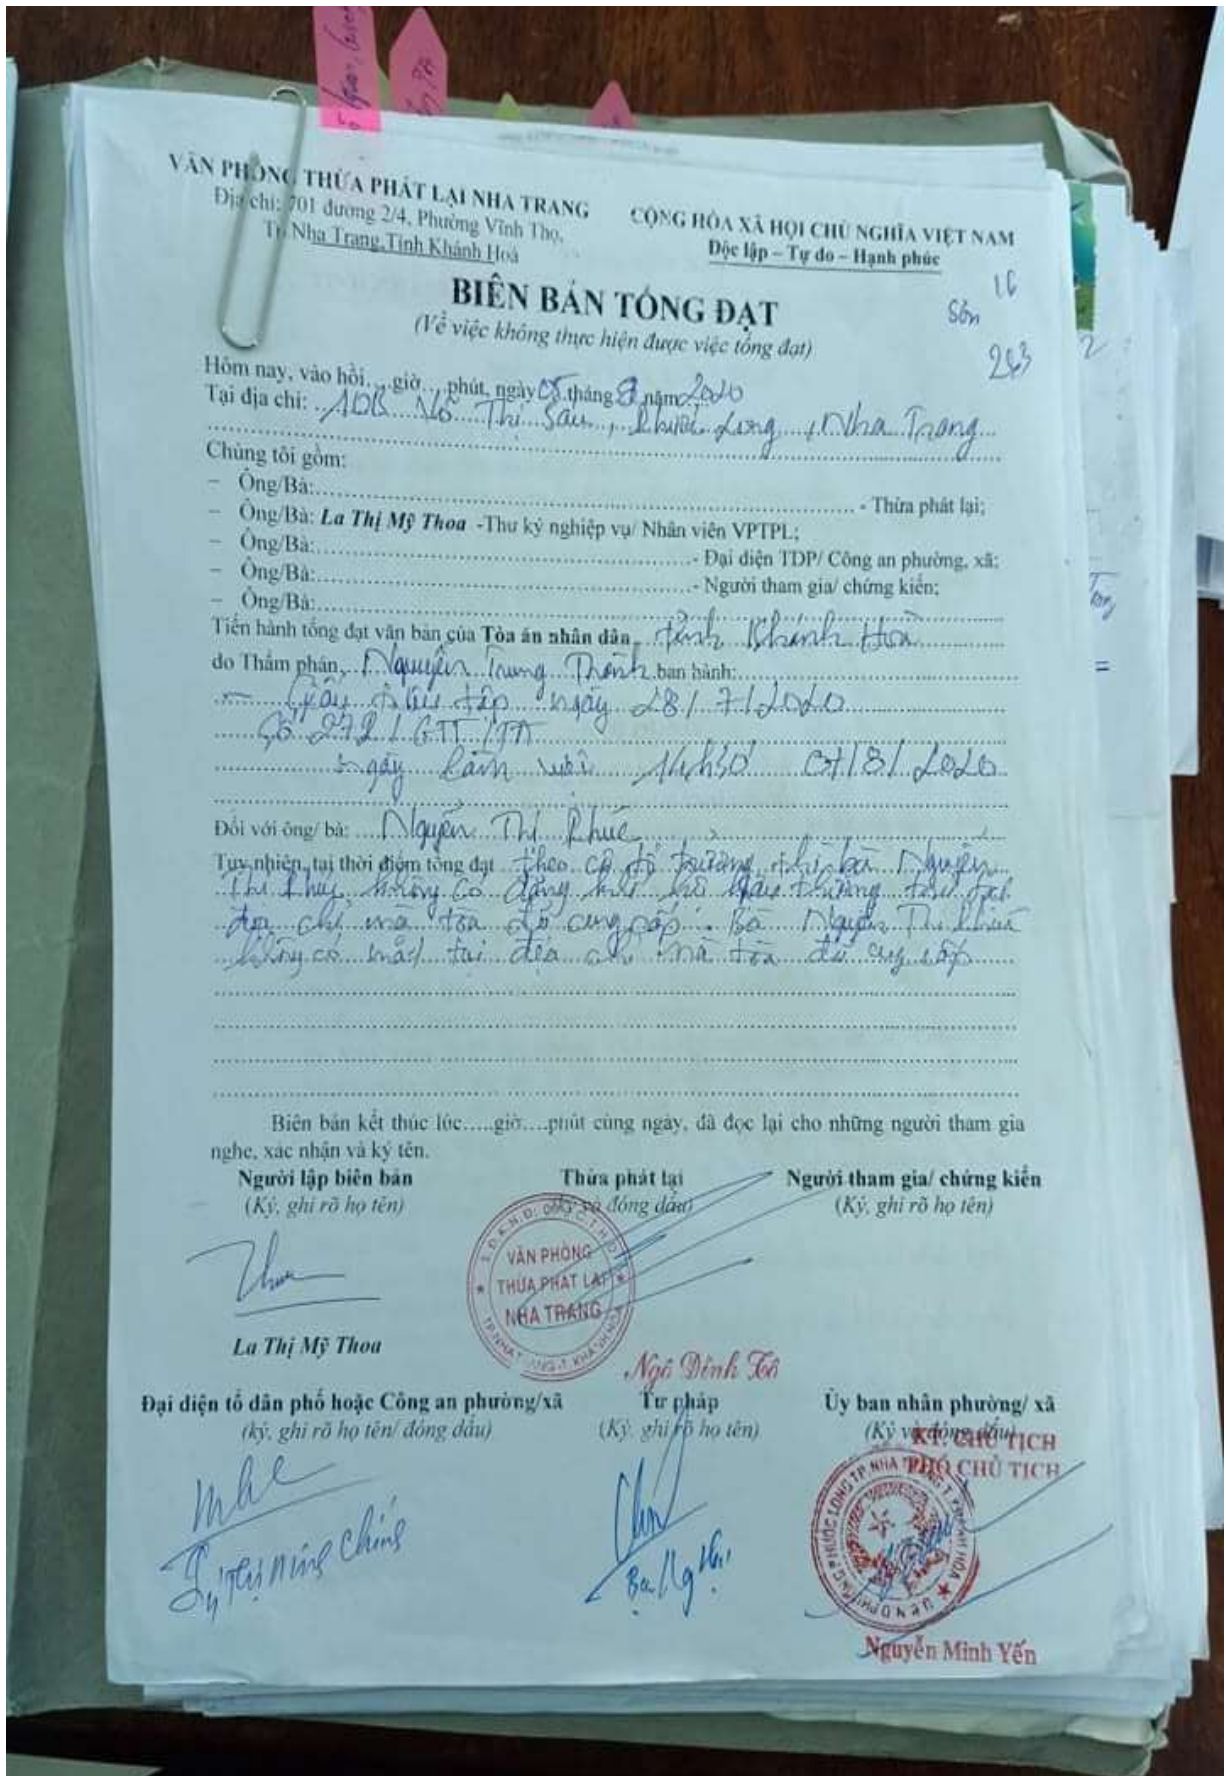 VĂN PHÒNG THỪA PHÁT LẠI NHA TRANG
Địa chỉ: 701 đường 2/4, Phường Vĩnh Thọ,
Tp Nha Trang, Tỉnh Khánh Hoà
CỘNG HÒA XÃ HỘI CHỦ NGHĨA VIỆT NAM
Độc lập – Tự do – Hạnh phúc
16
263
BIÊN BẢN TỐNG ĐẠT
(Về việc không thực hiện được việc tống đạt)
Hôm nay, vào hồi....giờ....phút, ngày 05 tháng 8 năm 2020
Tại địa chỉ: 10B Võ Thị Sáu, Phước Long, Nha Trang
Chúng tôi gồm:
– Ông/Bà: - Thừa phát lại;
– Ông/Bà: La Thị Mỹ Thoa -Thư ký nghiệp vụ/ Nhân viên VPTPL;
– Ông/Bà: - Đại diện TDP/ Công an phường, xã;
– Ông/Bà: - Người tham gia/ chứng kiến;
– Ông/Bà:
Tiến hành tống đạt văn bản của Tòa án nhân dân tỉnh Khánh Hoà
do Thẩm phán Nguyễn Trung Thành ban hành:
– Giấy triệu tập ngày 28/7/2020
Số 272/GTT/TA
ngày làm việc 14h30 07/8/2020
Đối với ông/ bà: Nguyễn Thị Phúc
Tuy nhiên, tại thời điểm tống đạt theo tổ trưởng thì bà Nguyễn
Thị không có đăng hộ khẩu thường trú tại
địa chỉ mà tòa đã cung cấp. Bà Nguyễn Thị Phúc
không có mặt tại địa chỉ mà tòa đã cung cấp
Biên bản kết thúc lúc.....giờ....phút cùng ngày, đã đọc lại cho những người tham gia
nghe, xác nhận và ký tên.
Người lập biên bản Thừa phát lại Người tham gia/ chứng kiến
(Ký, ghi rõ họ tên) (Ký và đóng dấu) (Ký, ghi rõ họ tên)
VĂN PHÒNG
THỪA PHÁT LẠI
NHA TRANG
La Thị Mỹ Thoa
Ngô Đình Tô
Đại diện tổ dân phố hoặc Công an phường/xã Tư pháp Ủy ban nhân phường/ xã
(ký, ghi rõ họ tên/ đóng dấu) (Ký, ghi rõ họ tên) (Ký và đóng dấu)
KT. CHỦ TỊCH
PHÓ CHỦ TỊCH
Nguyễn Minh Yến